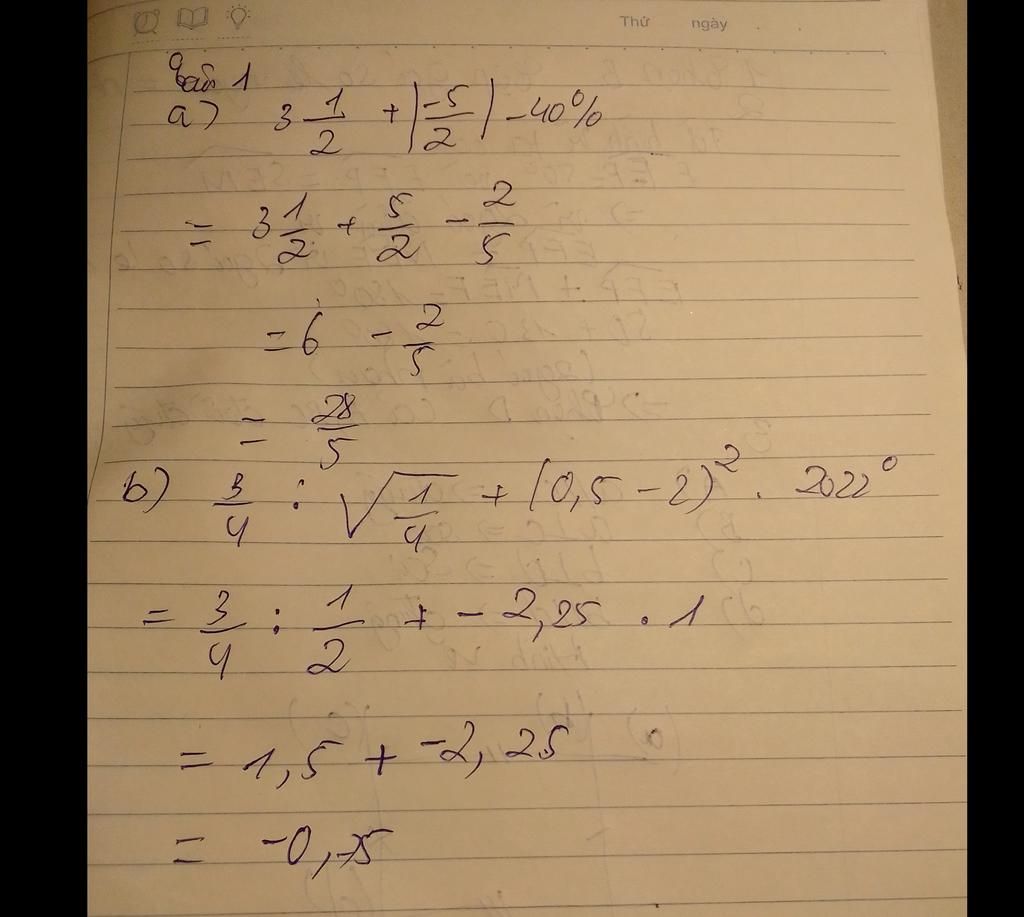 Thứ ngày
Bài 1
a) 3 1/2 + |-5/2| - 40%
= 3 1/2 + 5/2 - 2/5
= 6 - 2/5
= 28/5
b) 3/4 : √(1/4) + (0,5 - 2)² . 2022⁰
= 3/4 : 1/2 + - 2,25 . 1
= 1,5 + -2,25
= -0,75